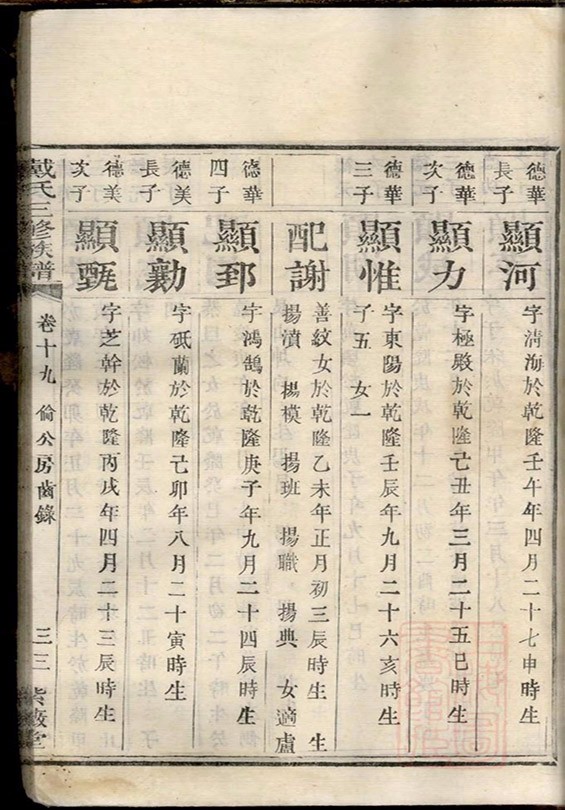 德華長子
顯河
字清海於乾隆壬午年四月二十七申時生
德華次子
顯力
字極殿於乾隆己丑年三月二十五巳時生
德華三子
顯惟
字東陽於乾隆壬辰年九月二十六亥時生
子五 女一
配謝
善紋女於乾隆乙未年正月初三辰時生 生
揚濆 揚模 揚班 揚職 揚典 女適盧
德華四子
顯郅
字鴻鵠於乾隆庚子年九月二十四辰時生
德美長子
顯勷
字砥蘭於乾隆己卯年八月二十寅時生
德美次子
顯甄
字芝幹於乾隆丙戌年四月二十三辰時生
戴氏三修族譜
卷十九 倫公房齒錄
三三
紫薇堂